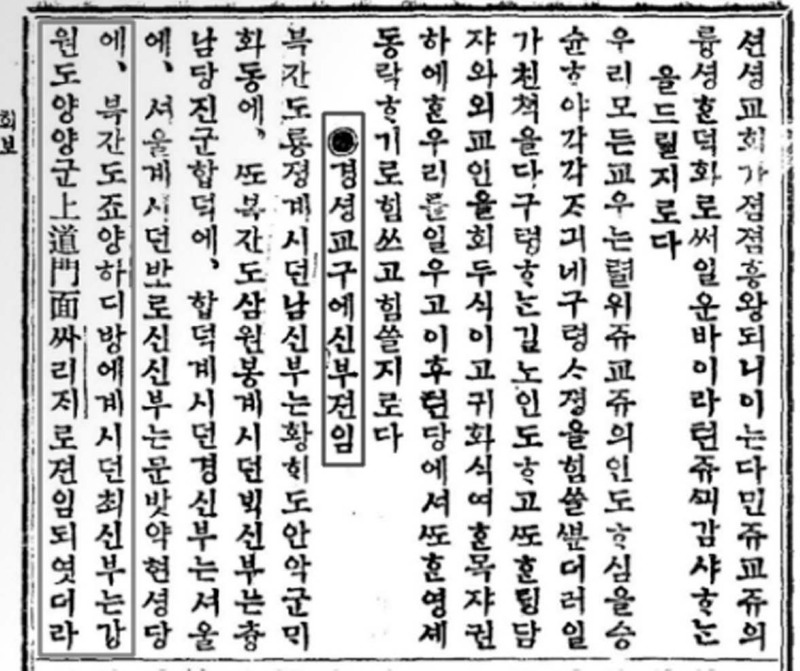 션셩교회가졈졈흥왕되니이는다민쥬교쥬의
륭셩ᄒᆞᆫ덕화로써일운바이라텬쥬ᄭᅴ감샤ᄒᆞ눈
을드릴지로다
우리모든교우는렬위쥬교쥬의인도ᄒᆞ심을승
슌ᄒᆞ야각각ᄌᆞ긔네구령ᄉᆞ졍을힘쓸ᄲᅮᆫ더러일
가친쳑을다구령ᄒᆞ눈길노인도ᄒᆞ고ᄯᅩᄒᆞᆫ담
쟈와외교인을회두식이고귀화식여ᄒᆞᆫ목쟈권
하에ᄒᆞᆫ우리를일우고이후텬당에셔ᄯᅩᄒᆞᆫ영셰
동락ᄒᆞ기로힘쓰고힘쓸지로다
●경셩교구에신부젼임
북간도룡졍계시던남신부는황ᄒᆡ도안악군ᄆᆡ
화동에、ᄯᅩ북간도삼원봉계시던ᄇᆡᆨ신부는츙
남당진군합덕에、합덕계시던경신부는셔울
에、셔울계시던로신신부는문밧약현셩당
에、북간도죠양하디방에계시던최신부는강
원도양양군上道門面싸리ᄌᆡ로젼임되엿더라
회보